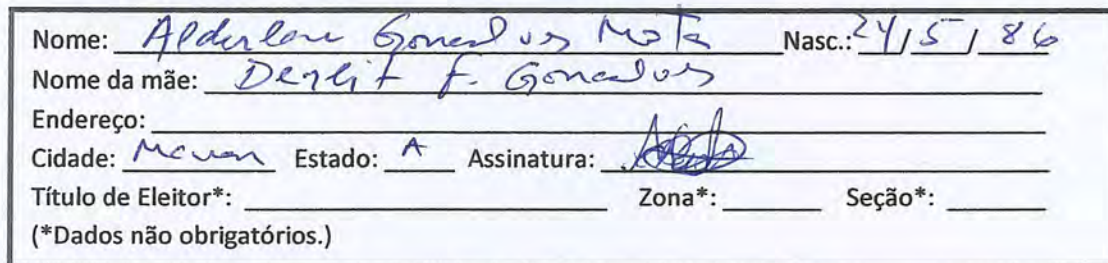 Nome: Gonçalves Mota Nasc.: 24/5/86
Nome da mãe: F. Gonçalves
Endereço:
Cidade: Estado: A Assinatura:
Título de Eleitor*: Zona*: Seção*:
(*Dados não obrigatórios.)